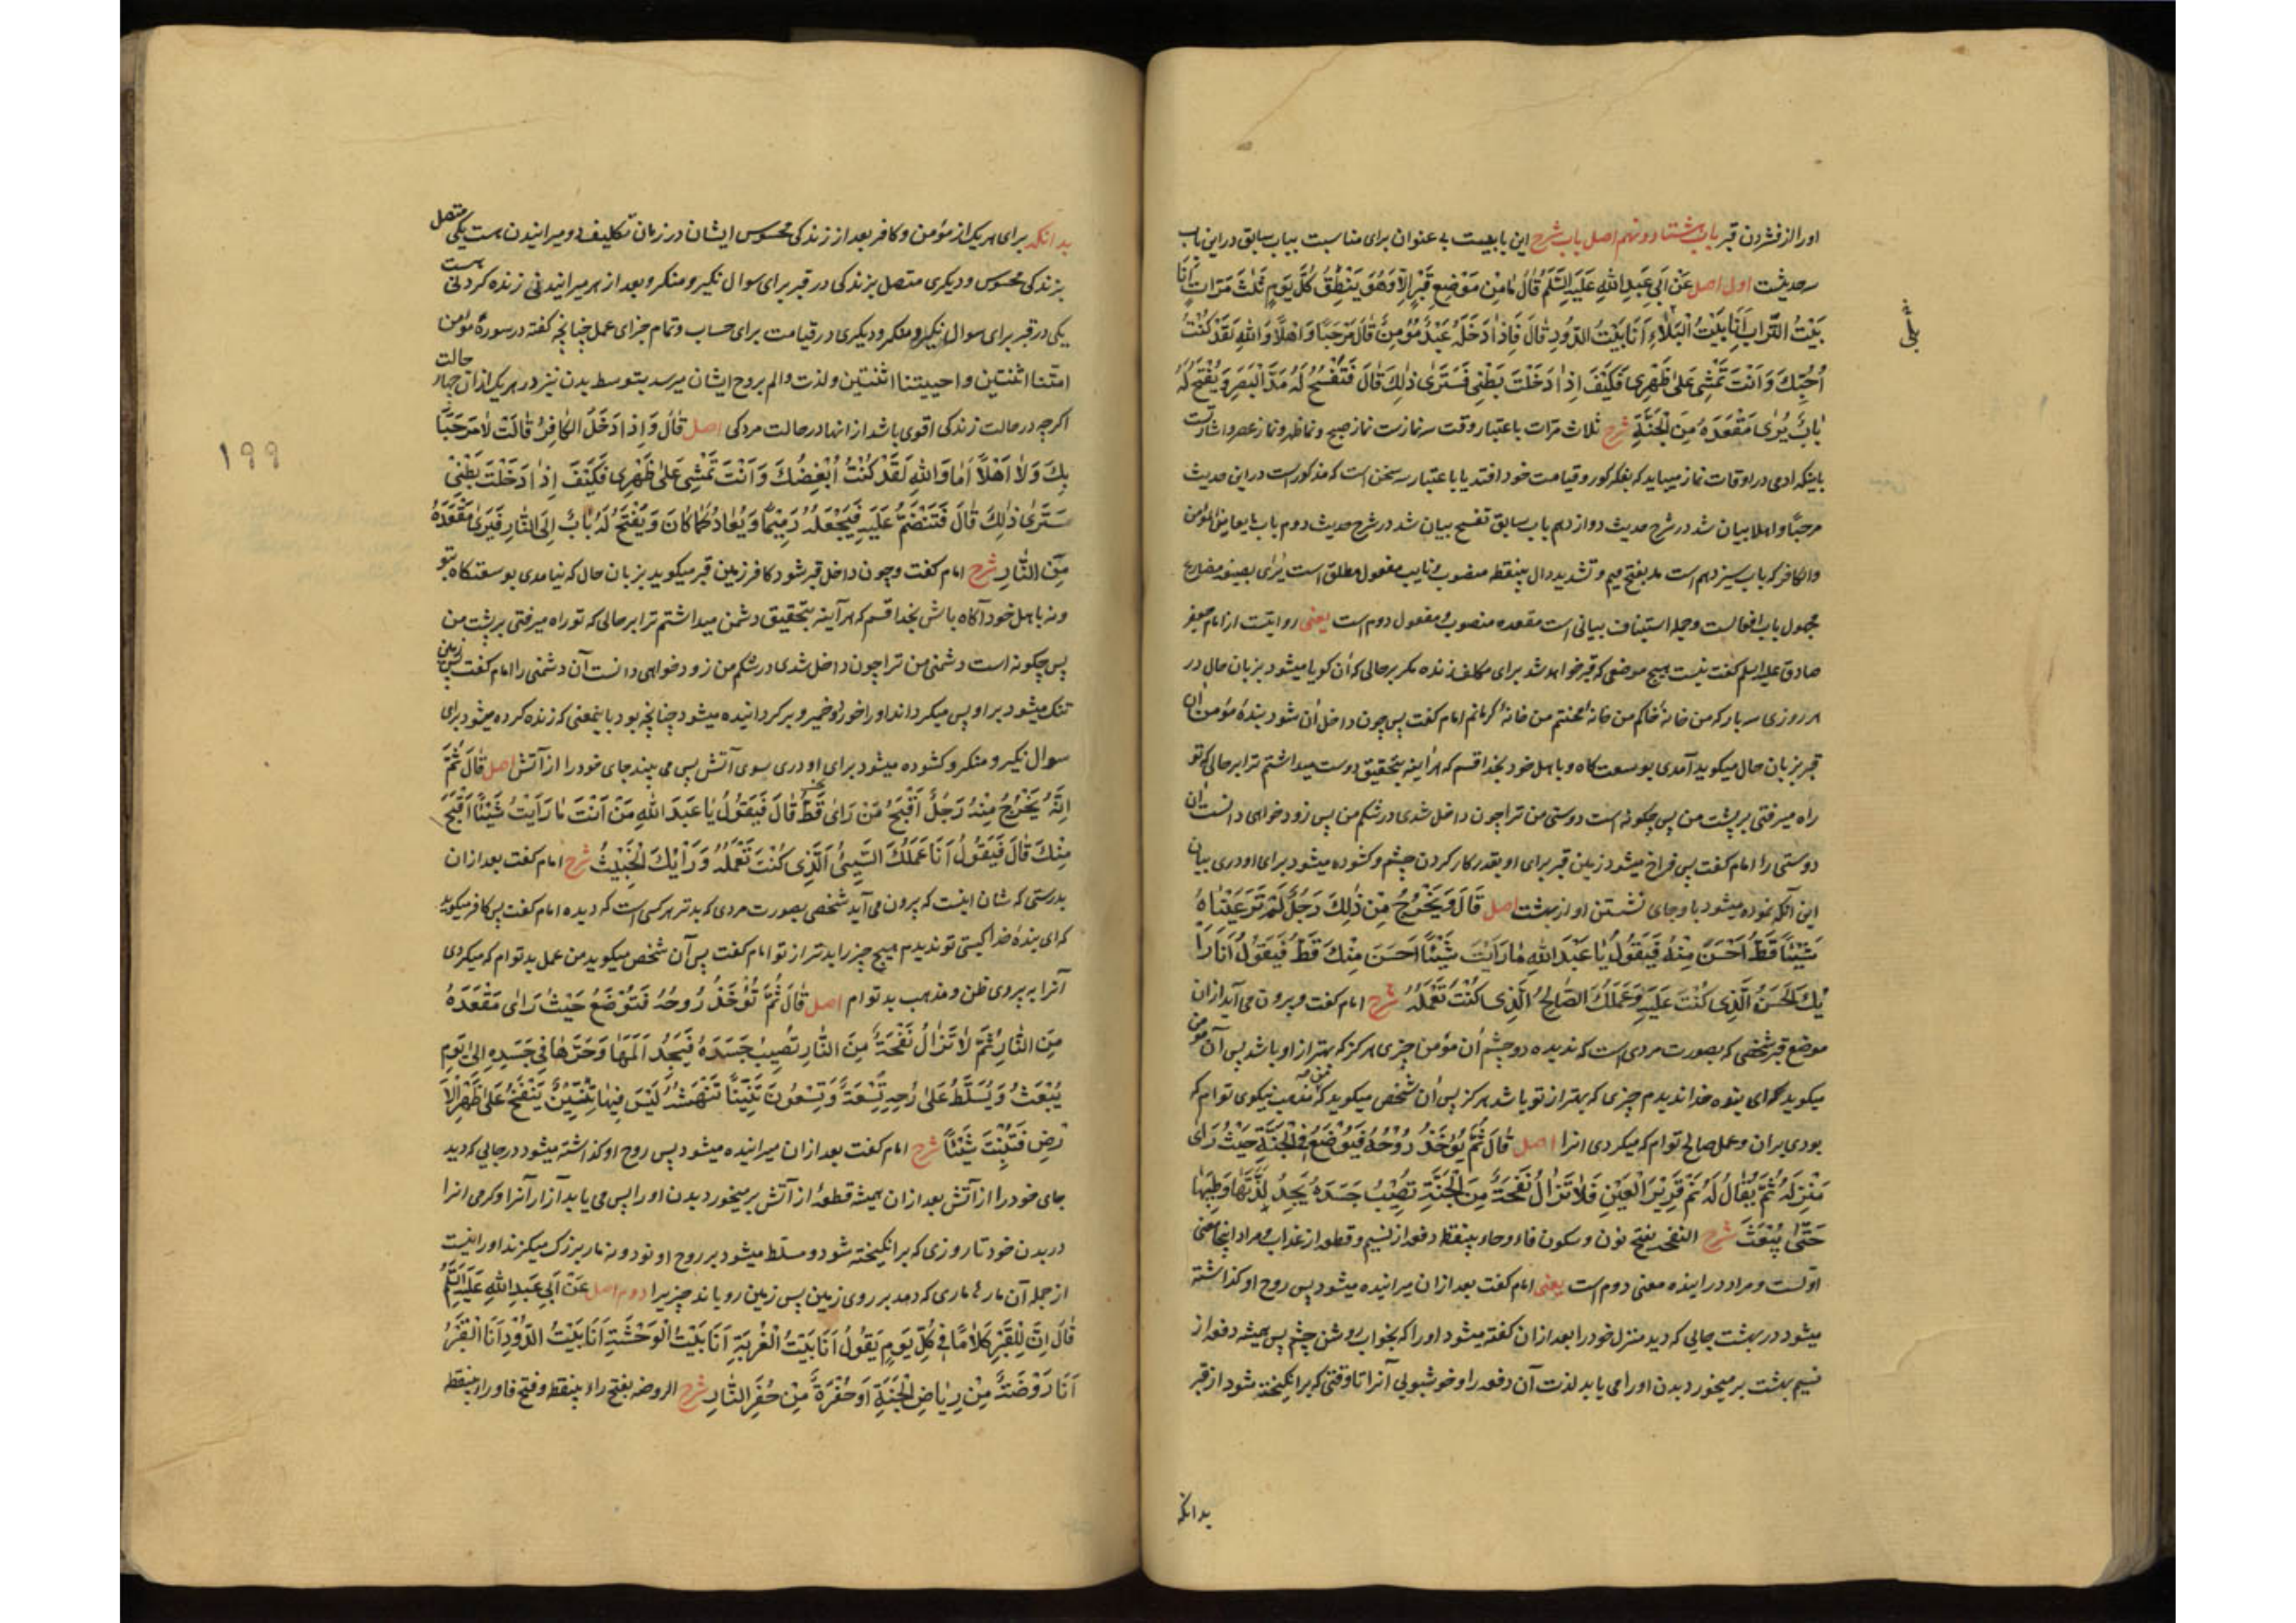 اورا از فشردن قبر باب هشتاد و نهم اصل باب شرح این بابیست بی عنوان برای مناسبت بباب سابق در این باب
سه حدیثست اول اصل عَنْ اَبِی عَبْدِ اللهِ عَلَیْهِ السَّلَمُ قَالَ مَا مِنْ مَوْضِعِ قَبْرٍ اِلَّا وَهُوَ یَنْطِقُ کُلَّ یَوْمٍ ثَلٰثَ مَرَّاتٍ اَنَا
بَیْتُ التُّرَابِ اَنَا بَیْتُ الْبَلَاءِ اَنَا بَیْتُ الدُّودِ قَالَ فَاِذَا دَخَلَهُ عَبْدٌ مُؤْمِنٌ قَالَ مَرْحَبًا وَاَهْلًا وَاللهِ لَقَدْ کُنْتُ
بلی
اُحِبُّكَ وَاَنْتَ تَمْشِی عَلٰی ظَهْرِی فَکَیْفَ اِذَا دَخَلْتَ بَطْنِی فَسَتَرٰی ذٰلِكَ قَالَ فَتَفْسَحُ لَهُ مَدَّ الْبَصَرِ وَیُفْتَحُ لَهُ
بَابٌ یُرٰی مَقْعَدَهُ مِنَ الْجَنَّةِ شرح ثلاث مرات باعتبار وقت سه نمازست نماز صبح و نماز ظهر و نماز عصر و اشارتست
باینکه ادمی در اوقات نماز میباید که بفکر گور و قیامت خود افتد یا باعتبار سه سخن است که مذکور است در این حدیث
مرحبًا و اهلا بیان شد در شرح حدیث دوازدهم باب سابق تفسح بیان شد در شرح حدیث دوم باب ما یعاین المؤمن
والکافر که باب سیزدهم است مد بفتح میم و تشدید دال بینقطه منصوب و نایب مفعول مطلق است یُرٰی بصیغه مضارع
مجهول باب افعالست و جمله استیناف بیانی است مقعده منصوب و مفعول دوم است یعنی روایتست از امام جعفر
صادق علیه السلم گفت نیست هیچ موضعی که قبر خواهد شد برای مکلف زنده مگر برحالی که آن گویا میشود بزبان حال در
هر روزی سه بار که من خانهٔ خاکم من خانهٔ محنتم من خانهٔ کرمانم امام گفت پس چون داخل آن شود بندهٔ مؤمن آن
قبر بزبان حال میگوید آمدی بوسعتکاه و باهل خود بخدا قسم که هرآینه بتحقیق دوست میداشتم ترا برحالی که تو
راه میرفتی برپشت من پس چگونه است دوستی من ترا چون داخل شدی در شکم من پس زود خواهی دانست آن
دوستی را امام گفت پس فراخ میشود زمین قبر برای او بقدر کار کردن چشم و کشوده میشود برای او دری بیان
این آنکه نموده میشود با و جای نشستن او از بهشت اصل قَالَ وَیَخْرُجُ مِنْ ذٰلِكَ رَجُلٌ لَمْ تَرَ عَیْنَاهُ
شَیْئًا قَطُّ اَحْسَنَ مِنْهُ فَیَقُولُ یَا عَبْدَ اللهِ مَا رَاَیْتُ شَیْئًا اَحْسَنَ مِنْكَ قَطُّ فَیَقُولُ اَنَا رَا
یُكَ الْحَسَنُ الَّذِی کُنْتَ عَلَیْهِ وَعَمَلُكَ الصَّالِحُ الَّذِی کُنْتَ تَعْمَلُهُ شرح امام گفت و بیرون می آید از ان
موضع قبر شخصی که بصورت مردی است که ندیده دو چشم آن مؤمن چیزی هرگز که بهتر از او باشد پس آن مؤمن
میگوید که ای بنده خدا ندیدم چیزی که بهتر از تو باشد هرگز پس آن شخص میگوید که من مذهب نیکوی توام که
بودی بران و عمل صالح توام که میکردی انرا اصل قَالَ ثُمَّ یُؤْخَذُ رُوحُهُ فَیُوضَعُ فِی الْجَنَّةِ حَیْثُ رَاٰی
مَنْزِلَهُ ثُمَّ یُقَالُ لَهُ نَمْ قَرِیرَ الْعَیْنِ فَلَا تَزَالُ نَفْحَةٌ مِنَ الْجَنَّةِ تُصِیبُ جَسَدَهُ یَجِدُ لَذَّتَهَا وَطِیبَهَا
حَتّٰی یُبْعَثَ شرح النفحه بفتح نون و سکون فاء و حاء بینقطه دفعه از نسیم و قطعه از عذاب و مراد اینجا معنی
اولست و مراد در آینده معنی دوم است یعنی امام گفت بعد از ان میرانیده میشود پس روح او گذاشته
میشود در بهشت جایی که دید منزل خود را بعد از ان گفته میشود اورا که بخواب روشن چشم پس همیشه دفعه از
نسیم بهشت بر میخورد بدن اورا می یابد لذت آن دفعه را و خوشبویی آنرا تا وقتی که برانگیخته شود از قبر
بدانکه
بدانکه برای هر یک از مؤمن و کافر بعد از زندکی محسوس ایشان در زمان تکلیف دو میرانیدن هست یکی متصل
بزندکی محسوس و دیگری متصل بزندکی در قبر برای سوال نکیر و منکر و بعد از هر میرانیدنی زنده کردنی هست
یکی در قبر برای سوال نکیر و منکر و دیگری در قیامت برای حساب و تمام جزای عمل چنانچه گفته در سورهٔ مؤمن
امتّنا اثنتین و احییتنا اثنتین و لذت و الم بروح ایشان میرسد بتوسط بدن نیز در هر یک از ان چهار حالت
اگرچه در حالت زندکی اقوی باشد از انها در حالت مردکی اصل قَالَ وَاِذَا دَخَلَ الْکَافِرُ قَالَتْ لَا مَرْحَبًا
بِكَ وَلَا اَهْلًا اَمَا وَاللهِ لَقَدْ کُنْتُ اُبْغِضُكَ وَاَنْتَ تَمْشِی عَلٰی ظَهْرِی فَکَیْفَ اِذَا دَخَلْتَ بَطْنِی
۱۹۹
سَتَرٰی ذٰلِكَ قَالَ فَتَنْضَمُّ عَلَیْهِ فَیَجْعَلُهُ رَمِیمًا وَیُعَادُ کَمَا کَانَ وَیُفْتَحُ لَهُ بَابٌ اِلَی النَّارِ فَیَرٰی مَقْعَدَهُ
مِنَ النَّارِ شرح امام گفت و چون داخل قبر شود کافر زمین قبر میگوید بزبان حال که نیامدی بوسعتکاه تو
و نه باهل خود آگاه باش بخدا قسم که هرآینه بتحقیق دشمن میداشتم ترا برحالی که تو راه میرفتی برپشت من
پس چگونه است دشمنی من ترا چون داخل شدی در شکم من زود خواهی دانست آن دشمنی را امام گفت پس زمین
تنگ میشود بر او پس میگرداند اورا خورد و خمیر و برگردانیده میشود چنانچه بود باینمعنی که زنده کرده میشود برای
سوال نکیر و منکر و کشوده میشود برای او دری بسوی آتش پس می بیند جای خود را از آتش اصل قَالَ ثُمَّ
اِنَّهُ یَخْرُجُ مِنْهُ رَجُلٌ اَقْبَحُ مَنْ رَاٰی قَطُّ قَالَ فَیَقُولُ یَا عَبْدَ اللهِ مَنْ اَنْتَ مَا رَاَیْتُ شَیْئًا اَقْبَحَ
مِنْكَ قَالَ فَیَقُولُ اَنَا عَمَلُكَ السَّیِّئُ الَّذِی کُنْتَ تَعْمَلُهُ وَرَأْیُكَ الْخَبِیثُ شرح امام گفت بعد از ان
بدرستی که شان اینست که بیرون می آید شخصی بصورت مردی که بدتر هر کسی است که دیده امام گفت پس کافر میگوید
که ای بندهٔ خدا کیستی تو ندیدم هیچ چیز را بدتر از تو امام گفت پس آن شخص میگوید من عمل بد توام که میکردی
آنرا به پیروی ظن و مذهب بد توام اصل قَالَ ثُمَّ تُؤْخَذُ رُوحُهُ فَتُوضَعُ حَیْثُ رَاٰی مَقْعَدَهُ
مِنَ النَّارِ ثُمَّ لَا تَزَالُ نَفْحَةٌ مِنَ النَّارِ تُصِیبُ جَسَدَهُ فَیَجِدُ اَلَمَهَا وَحَرَّهَا فِی جَسَدِهِ اِلٰی یَوْمِ
یُبْعَثُ وَیُسَلَّطُ عَلٰی رُوحِهِ تِسْعَةٌ وَتِسْعُونَ تِنِّینًا تَنْهَشُهُ لَیْسَ فِیهَا تِنِّینٌ یَنْفُخُ عَلٰی ظَهْرِ الْاَ
رْضِ فَتُنْبِتَ شَیْئًا شرح امام گفت بعد از ان میرانیده میشود پس روح او گذاشته میشود در جایی که دید
جای خود را از آتش بعد از ان همیشه قطعهٔ از آتش برمیخورد بدن اورا پس می یابد آزار آنرا و گرمی انرا
در بدن خود تا روزی که برانگیخته شود و مسلط میشود بر روح او نود و نه مار بزرگ میگزند اورا نیست
از جمله آن مارها ماری که دمد بر روی زمین پس زمین رویاند چیزیرا دوم اصل عَنْ اَبِی عَبْدِ اللهِ عَلَیْهِ السَّلَمُ
قَالَ اِنَّ لِلْقَبْرِ کَلَامًا فِی کُلِّ یَوْمٍ یَقُولُ اَنَا بَیْتُ الْغُرْبَةِ اَنَا بَیْتُ الْوَحْشَةِ اَنَا بَیْتُ الدُّودِ اَنَا الْقَبْرُ
اَنَا رَوْضَةٌ مِنْ رِیَاضِ الْجَنَّةِ اَوْ حُفْرَةٌ مِنْ حُفَرِ النَّارِ شرح الروضه بفتح راء بینقطه و فتح فا و راء بینقطه